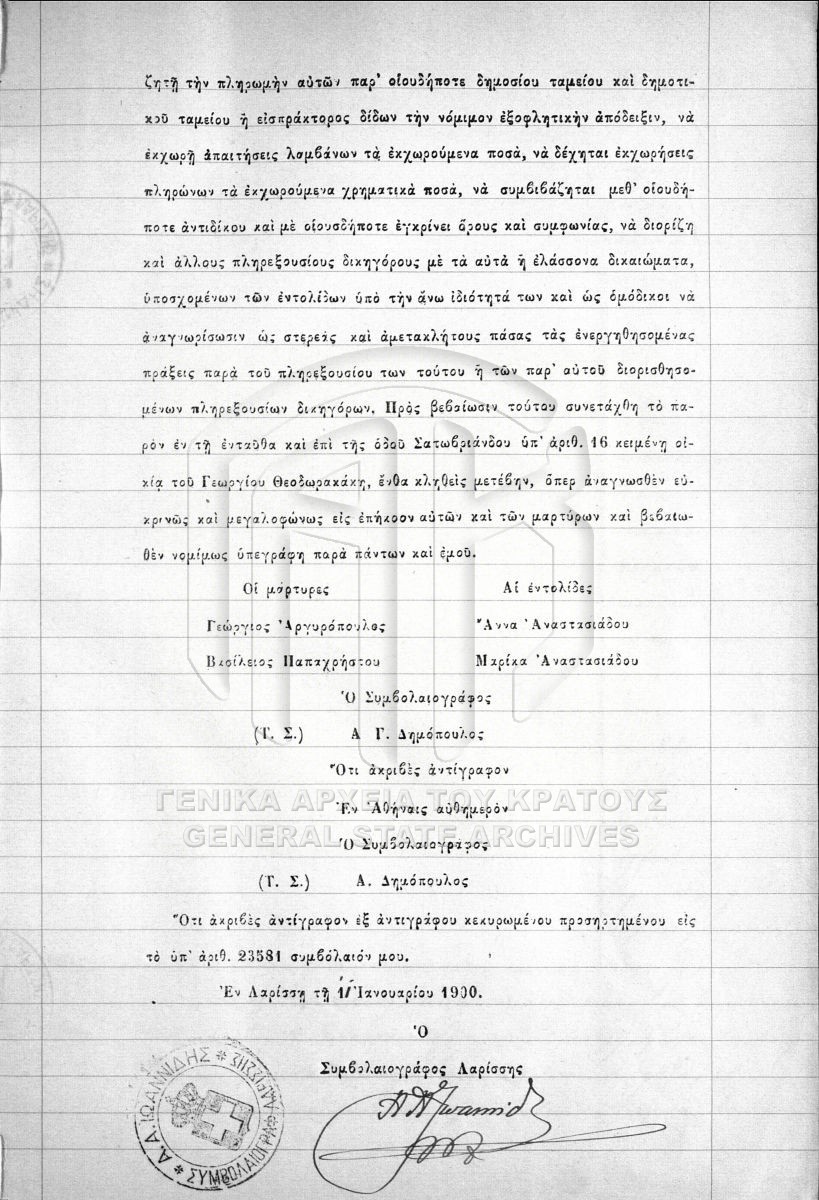 ζητῇ τὴν πληρωμὴν αὐτῶν παρ' οἱουδήποτε δημοσίου ταμείου καὶ δημοτι-
κοῦ ταμείου ἢ εἰσπράκτορος δίδων τὴν νόμιμον ἐξοφλητικὴν ἀπόδειξιν, νὰ
ἐκχωρῇ ἀπαιτήσεις λαμβάνων τὰ ἐκχωρούμενα ποσὰ, νὰ δέχηται ἐκχωρήσεις
πληρώνων τὰ ἐκχωρούμενα χρηματικὰ ποσά, νὰ συμβιβάζηται μεθ' οἱουδή-
ποτε ἀντιδίκου καὶ μὲ οἱουσδήποτε ἐγκρίνει ὅρους καὶ συμφωνίας, νὰ διορίζῃ
καὶ ἄλλους πληρεξουσίους δικηγόρους μὲ τὰ αὐτὰ ἢ ἐλάσσονα δικαιώματα,
ὑποσχομένων τῶν ἐντολίδων ὑπὸ τὴν ἄνω ἰδιότητά των καὶ ὡς ὁμόδικοι νὰ
ἀναγνωρίσωσιν ὡς στερεὰς καὶ ἀμετακλήτους πάσας τὰς ἐνεργηθησομένας
πράξεις παρὰ τοῦ πληρεξουσίου των τούτου ἢ τῶν παρ' αὐτοῦ διορισθησο-
μένων πληρεξουσίων δικηγόρων. Πρὸς βεβαίωσιν τούτου συνετάχθη τὸ πα-
ρὸν ἐν τῇ ἐνταῦθα καὶ ἐπὶ τῆς ὁδοῦ Σατωβριάνδου ὑπ' ἀριθ. 16 κειμένῃ οἰ-
κίᾳ τοῦ Γεωργίου Θεοδωρακάκη, ἔνθα κληθεὶς μετέβην, ὅπερ ἀναγνωσθὲν εὐ-
κρινῶς καὶ μεγαλοφώνως εἰς ἐπήκοον αὐτῶν καὶ τῶν μαρτύρων καὶ βεβαιω-
θὲν νομίμως ὑπεγράφη παρὰ πάντων καὶ ἐμοῦ.
Οἱ μάρτυρες Αἱ ἐντολίδες
Γεώργιος Ἀργυρόπουλος Ἄννα Ἀναστασιάδου
Βασίλειος Παπαχρήστου Μαρίκα Ἀναστασιάδου
Ὁ Συμβολαιογράφος
(Τ. Σ.) Α Γ. Δημόπουλος
Ὅτι ἀκριβὲς ἀντίγραφον
Ἐν Ἀθήναις αὐθημερὸν
ΓΕΝΙΚΑ ΑΡΧΕΙΑ ΤΟΥ ΚΡΑΤΟΥΣ
GENERAL STATE ARCHIVES
Ὁ Συμβολαιογράφος
(Τ. Σ.) Α. Δημόπουλος
Ὅτι ἀκριβὲς ἀντίγραφον ἐξ ἀντιγράφου κεκυρωμένου προσηρτημένου εἰς
τὸ ὑπ' ἀριθ. 23581 συμβόλαιόν μου.
Ἐν Λαρίσσῃ τῇ Ἰανουαρίου 1900.
Ὁ
Συμβολαιογράφος Λαρίσσης
Α.Δ.ΙΩΑΝΝΙΔΗΣ * ΣΥΜΒΟΛΑΙΟΓΡΑΦ ΛΑΡΙΣΣΗΣ *